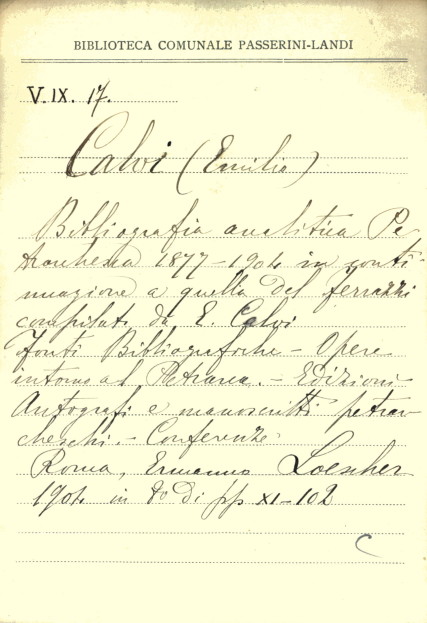 BIBLIOTECA COMUNALE PASSERINI-LANDI
V.IX. 17.
Calvi (Emilio)
Bibliografia analitica Pe-
trarchesca 1877-1904 in conti
nuazione a quella del Ferrazzi
compilata da E. Calvi
Fonti Bibliografiche - Opere
intorno al Petrarca. - Edizioni -
Autografi e manoscritti petrar
cheschi. - Conferenze
Roma, Ermanno Loescher
1904 in 8º di pp XI-102
C